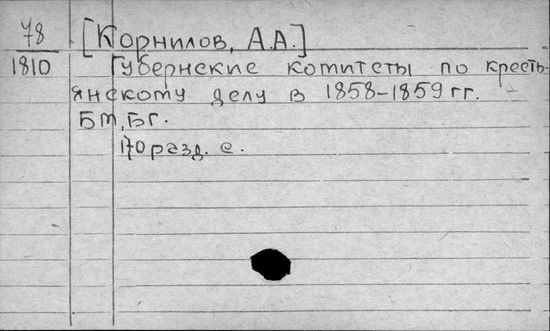 78 [Корнилов, А.А.]
1810 Губернские комитеты по кресть-
янскому делу в 1858-1859 гг.
БМ, БГ.
170 разд. с.